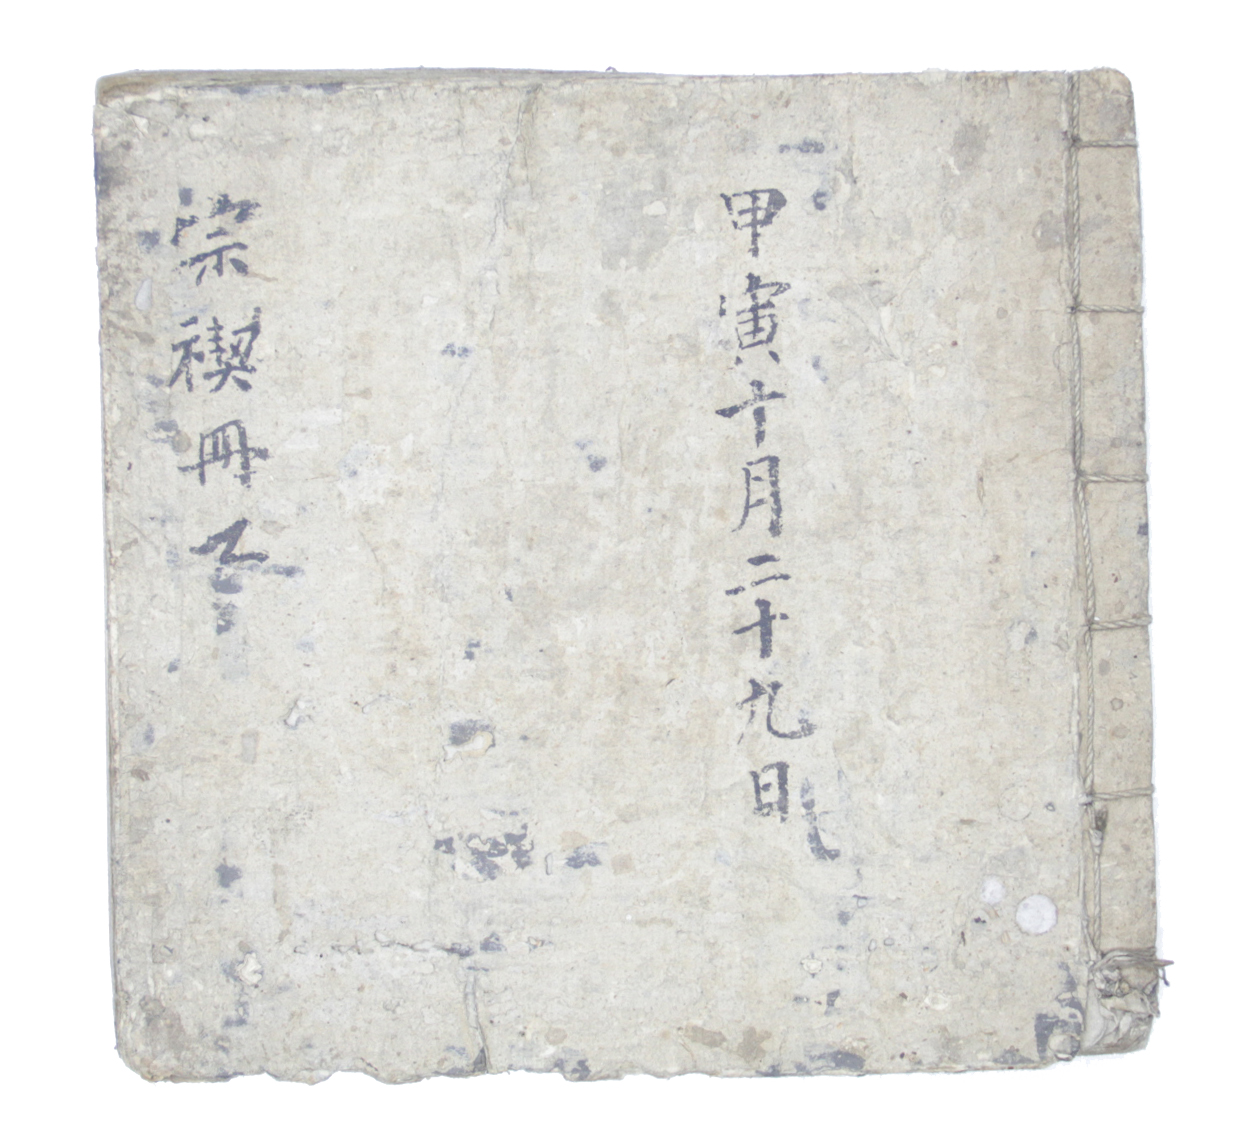 甲寅十月二十九日
宗禊冊